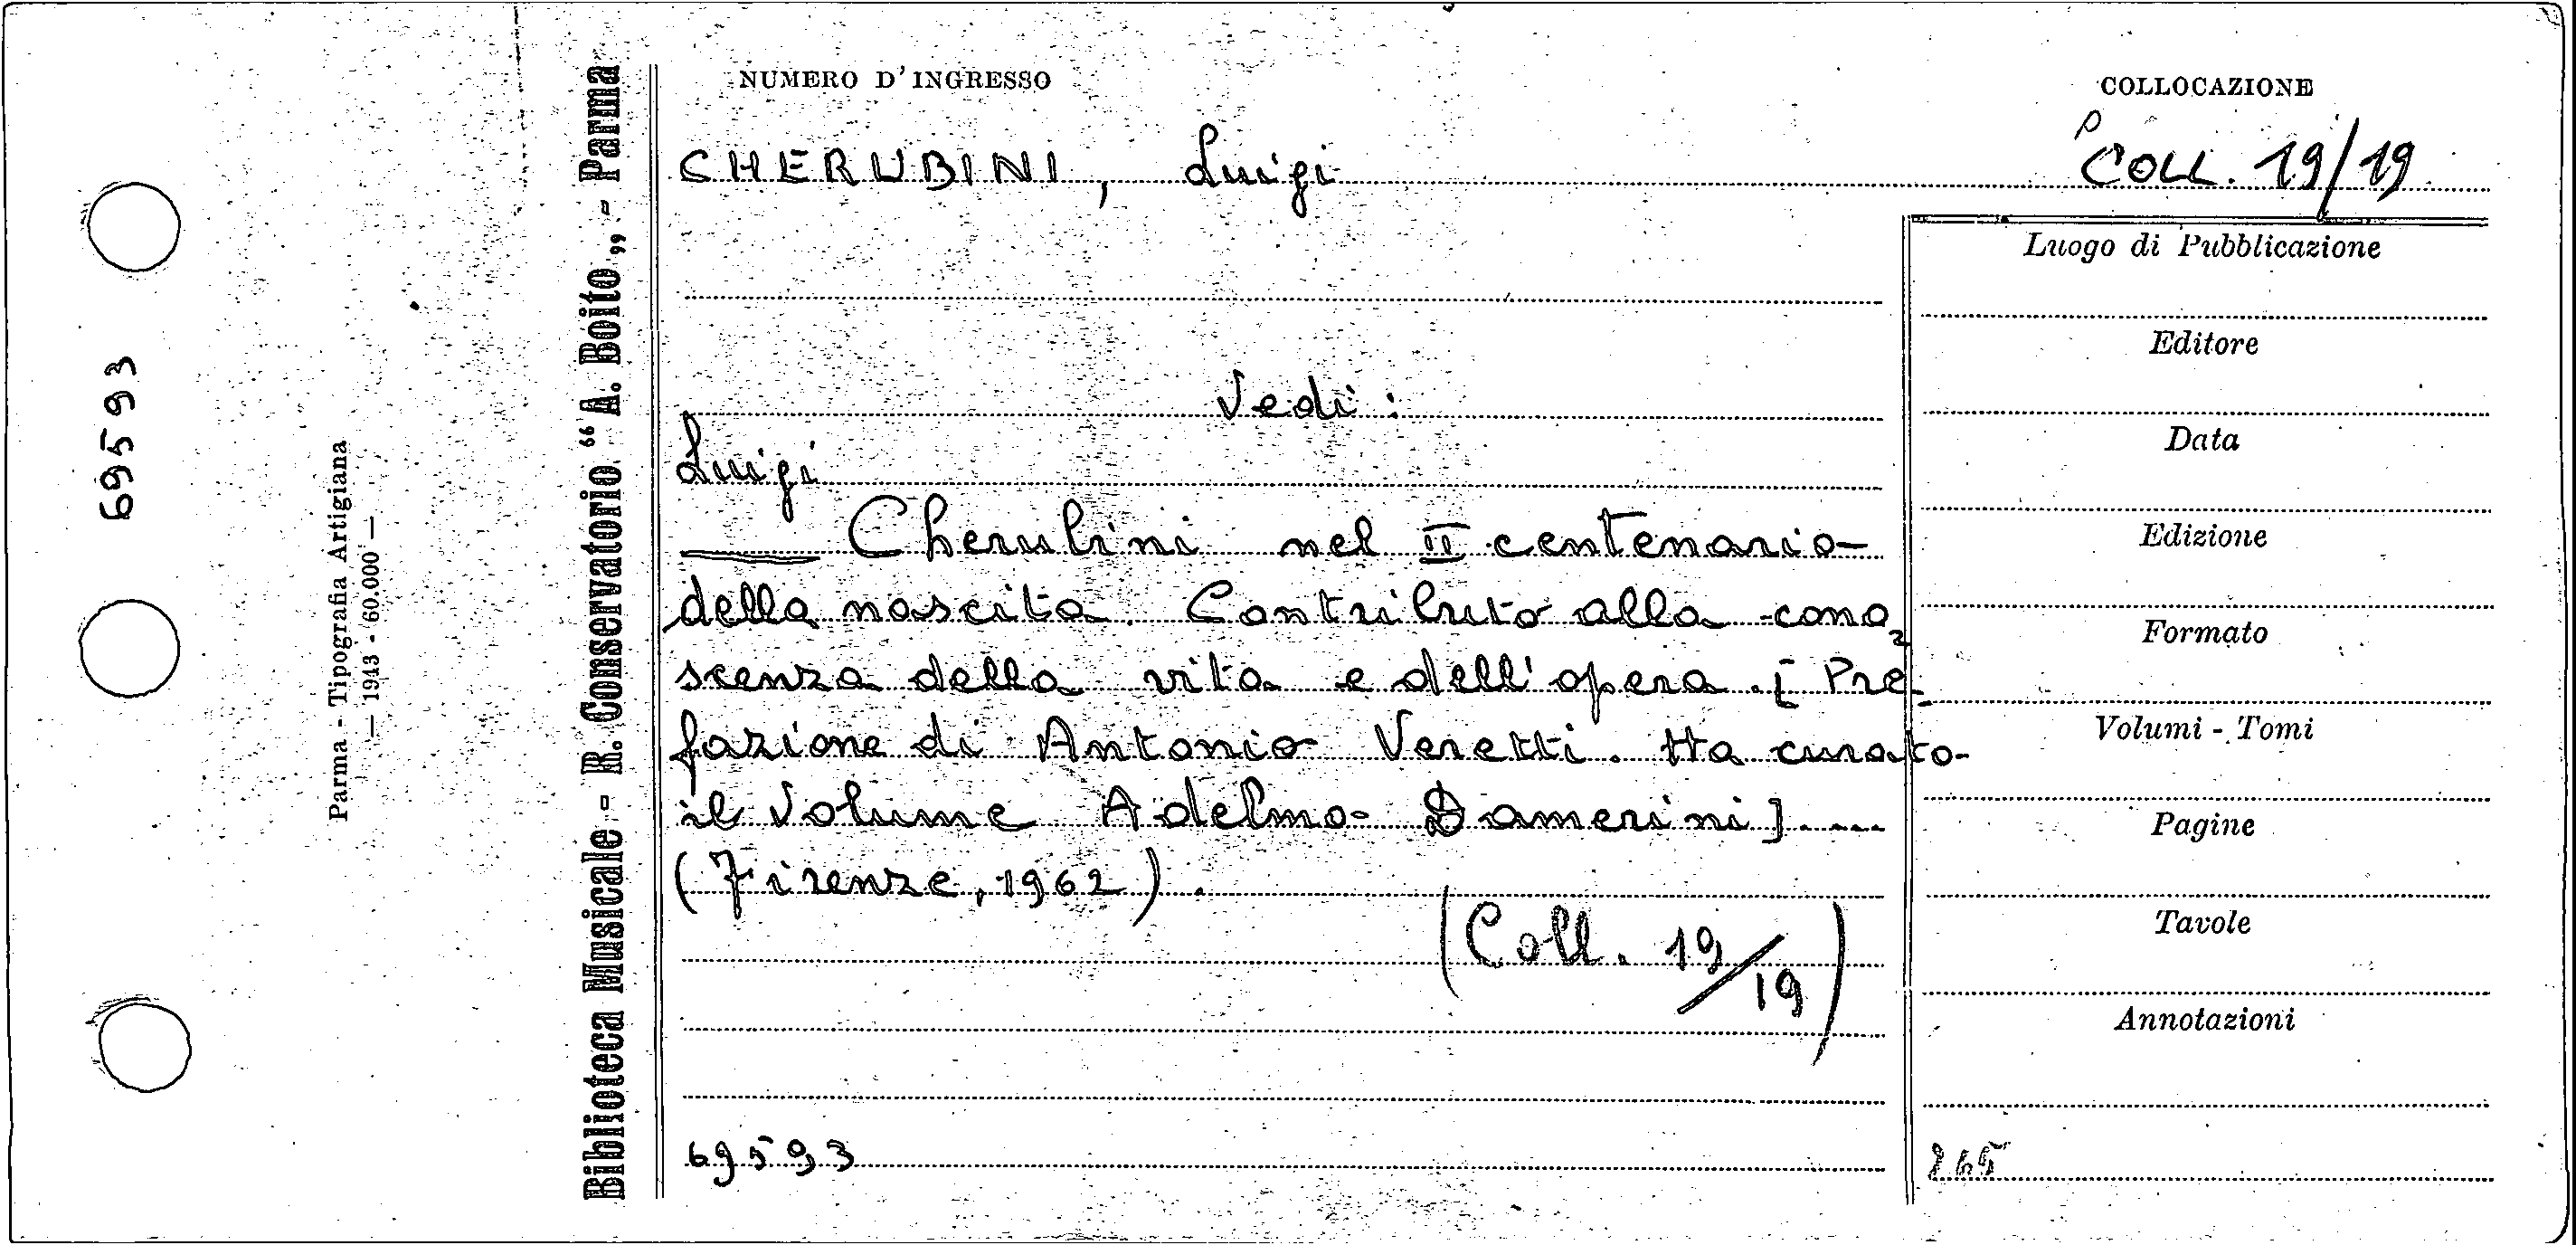 NUMERO D'INGRESSO
COLLOCAZIONE
CHERUBINI, Luigi
P
COLL. 19/19
Vedi:
Luigi
Cherubini nel II centenario
della nascita. Contributo alla cono-
scenza della vita e dell'opera. [Pre-
fazione di Antonio Veretti. Ha curato
il volume Adelmo Damerini]....
(Firenze, 1962).
(Coll. 19/19)
69593
Luogo di Pubblicazione
Editore
Data
Edizione
Formato
Volumi - Tomi
Pagine
Tavole
Annotazioni
265
Biblioteca Musicale - R. Conservatorio “A. Boito„ - Parma
Parma - Tipografia Artigiana
— 1943 - 60.000 —
69593